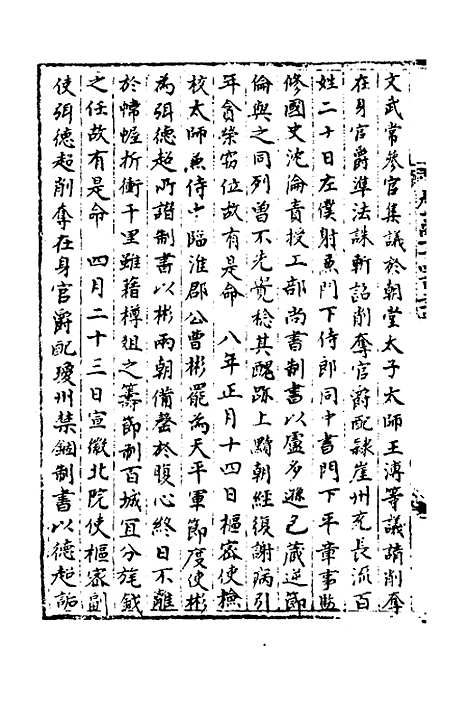 文武常參官集議於朝堂太子太師王溥等議請削奪
在身官爵準法誅斬詔削奪官爵配隸崖州充長流百
姓二十日左僕射兼門下侍郎同中書門下平章事監
修國史沈倫責授工部尚書制書以盧多遜已藏逆節
倫與之同列曾不先覺稔其醜跡上黷朝經復謝病引
年貪榮竊位故有是命　八年正月十四日樞密使檢
校太師兼侍中臨淮郡公曹彬罷為天平軍節度使彬
為弭德超所譖制書以彬兩朝備罄於腹心終日不離
於幃幄折衝千里雖藉樽俎之籌節制百城宜分旄鉞
之任故有是命　四月二十三日宣徽北院使樞密副
使弭德超削奪在身官爵配瓊州禁錮制書以德超詬